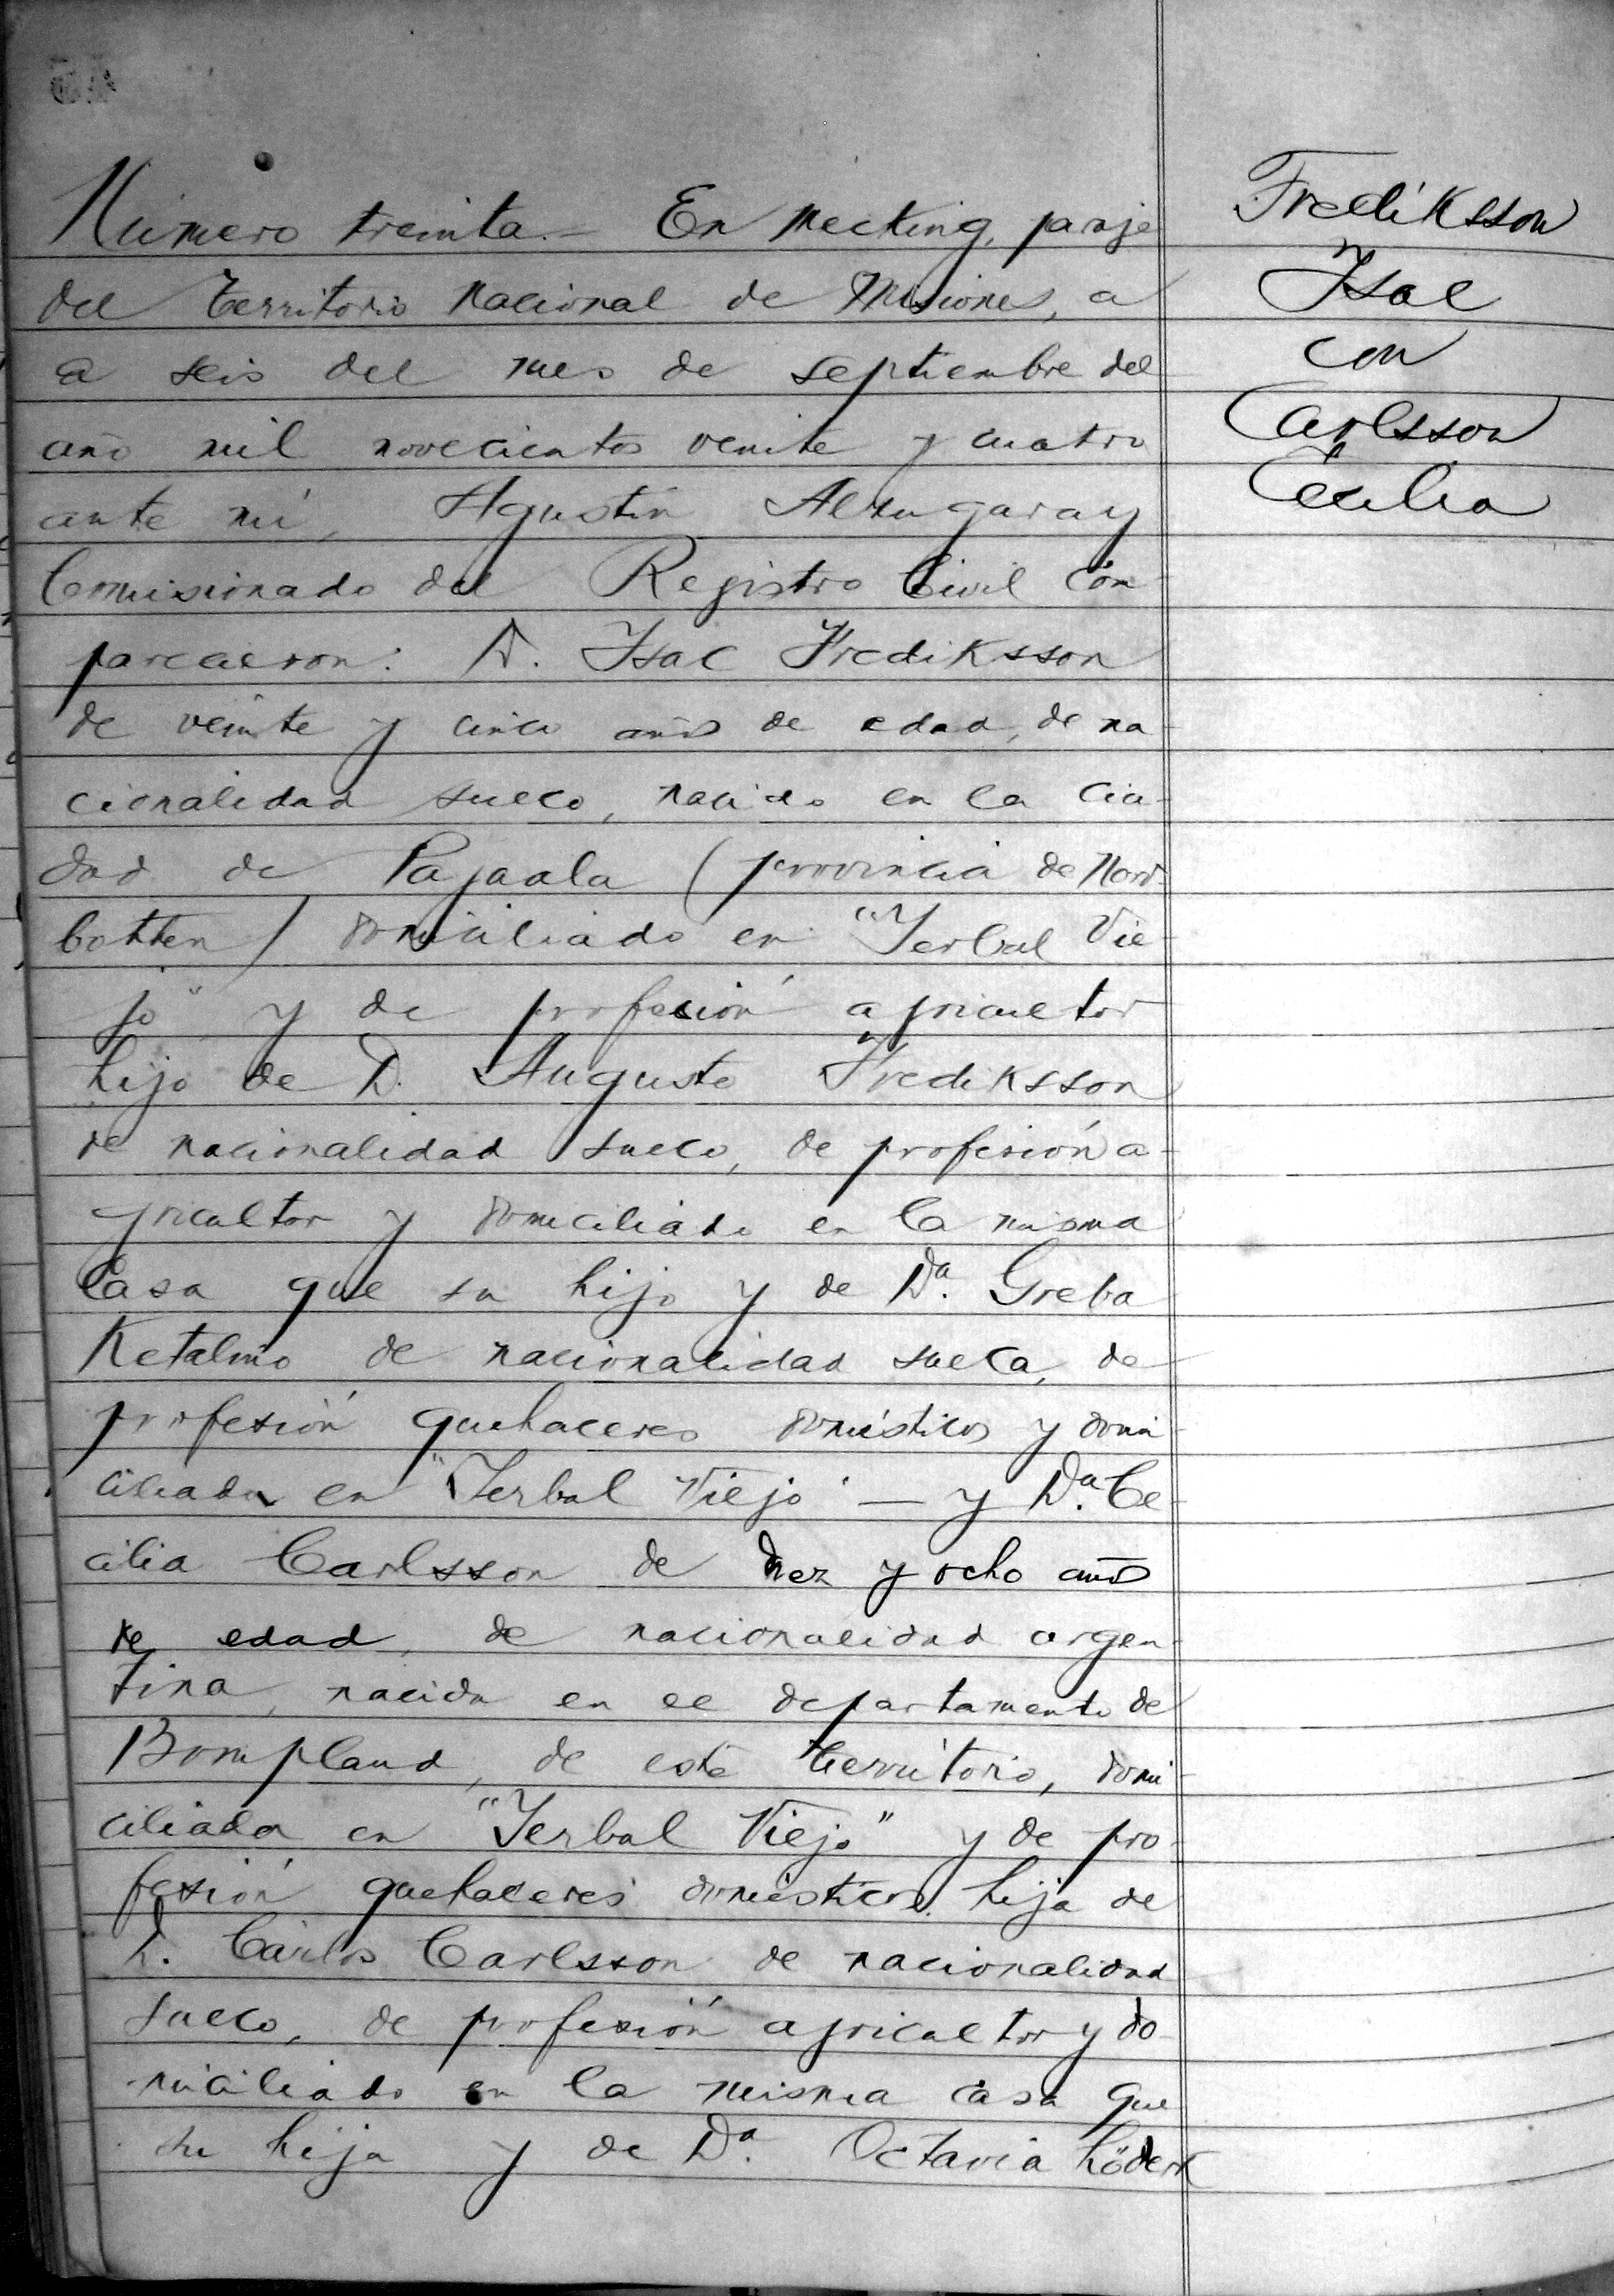 Número treinta.- En Mecking, paraje
del territorio nacional de Misiones, a
a seis del mes de septiembre del
año mil novecientos veinte y cuatro
ante mí, Agustín Alzugaray
Comisionado del Registro Civil Com-
parecieron: D. Isac Frediksson
de veinte y cinco años de edad, de na-
cionalidad sueco, nacido en la ciu-
dad de Pajaala (provincia de Nord-
botten) domiciliado en "Yerbal Vie-
jo" y de profesión agricultor
hijo de D. Augusto Frediksson
de nacionalidad sueco, de profesión a-
gricultor y domiciliado en la misma
casa que su hijo y de Da. Greba
Ketalmo de nacionalidad sueca, de
profesión quehaceres domésticos y domi-
ciliada en "Yerbal Viejo" — y Da. Ce-
cilia Carlsson de diez y ocho años
de edad, de nacionalidad argen-
tina, nacida en el departamento de
Bompland, de este territorio, domi-
ciliada en "Yerbal Viejo" y de pro-
fesión quehaceres domésticos, hija de
D. Carlos Carlsson de nacionalidad
sueco, de profesión agricultor y do-
miciliado en la misma casa que
su hija y de Da. Octavia
Frediksson
Isac
con
Carlsson
Cecilia